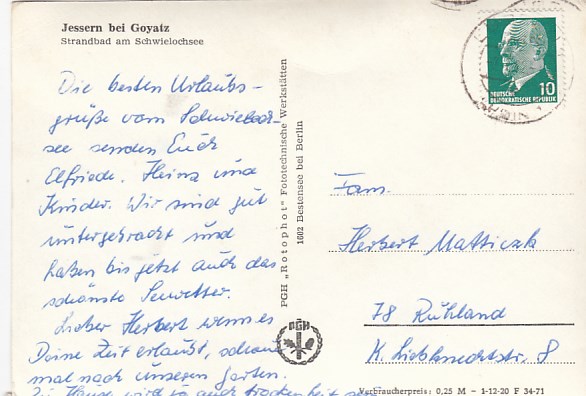 Jessern bei Goyatz
Strandbad am Schwielochsee
Die besten Urlaubs-
grüße vom Schwieloch-
see senden Euch
Elfriede, Heinz und
Kinder. Wir sind gut
untergebracht und
haben bis jetzt auch das
schönste Seewetter.
Lieber Herbert wenn es
Deine Zeit erlaubt, schau
mal nach unserem Garten.
Zu Hause wird ja auch Trockenheit sein
PGH „Rotophot" Fototechnische Werkstätten
1602 Bestensee bei Berlin
PGH
DEUTSCHE
DEMOKRATISCHE REPUBLIK
10
Fam.
Herbert Matticzk
78 Ruhland
K. Liebknechtstr. 8
Verbraucherpreis: 0,25 M - 1-12-20 F 34-71